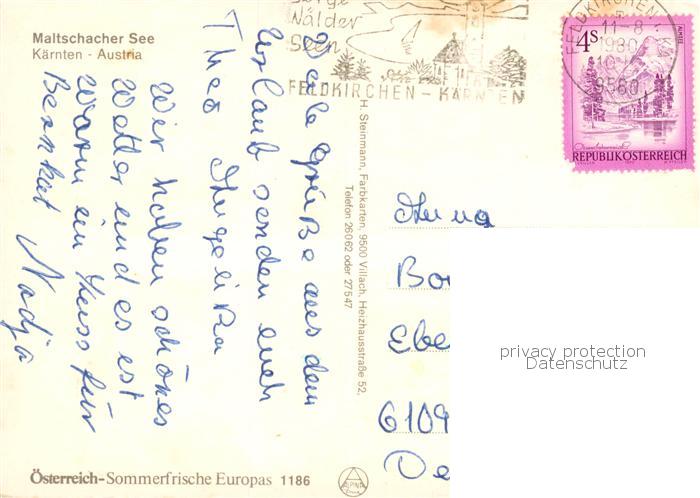 Maltschacher See
Kärnten - Austria
Berge
Wälder
Seen
FELDKIRCHEN - KÄRNTEN
FELDKIRCHEN
11-8
1980
10
9560
4 S
REPUBLIK ÖSTERREICH
Viele Grüße aus dem
Urlaub senden euch
Theo Angelika
Wir haben schönes
Wetter und es ist
warm ein Kuss für
Nadja
H. Steinmann, Farbkarten, 9500 Villach, Heizhausstraße 52,
Telefon 26062 oder 27647
Anna
Bo
Ebe
6109
De
privacy protection
Datenschutz
Österreich-Sommerfrische Europas 1186
ALPINA